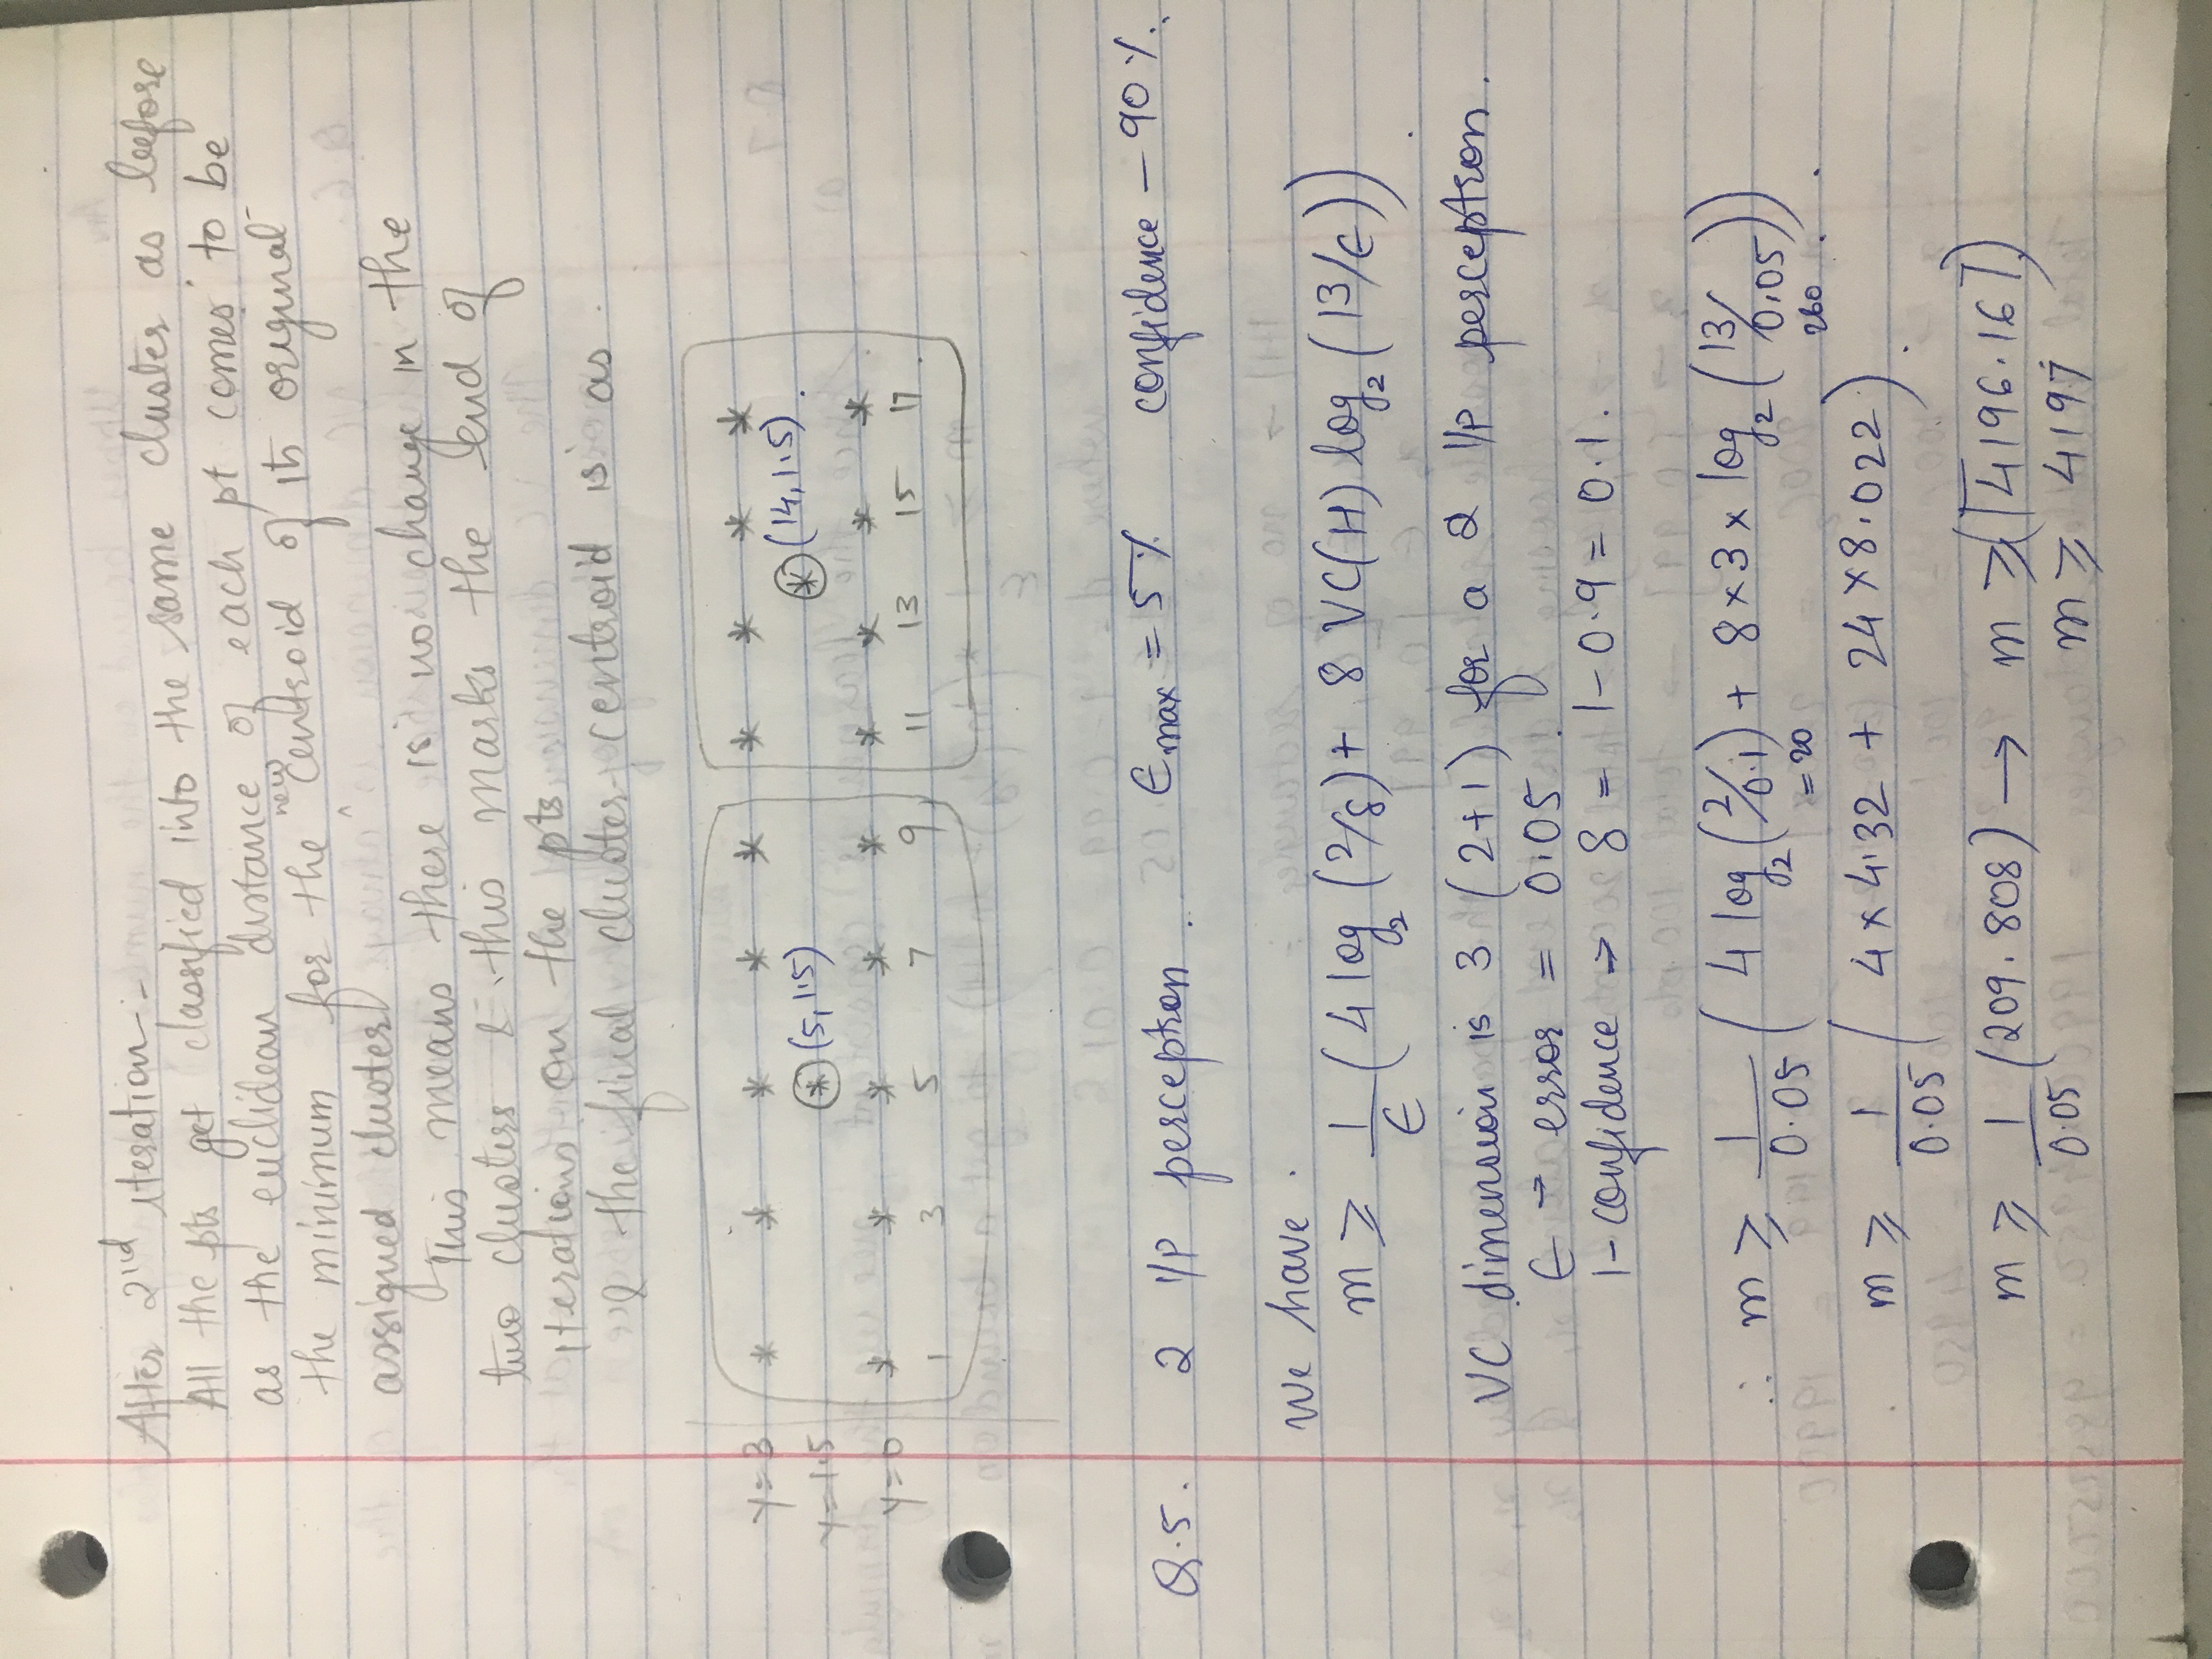 After 2nd iteration :-
All the pts get classified into the same cluster as before
as the euclidean distance of each pt comes to be
the minimum for the new centroid of its original
assigned cluster
This means there is no change in the
two clusters & this marks the end of
iterations on the pts
& the final cluster centroid is as
y=3 * * * * * * * * *
y=1.5 * (5, 1.5) * (14, 1.5).
y=0 * * * * * * * * *
1 3 5 7 9 11 13 15 17
Q.5. 2 I/P perceptron. ϵmax = 5% confidence – 90%.
We have.
m ≥ 1/ϵ (4 log₂ (2/δ) + 8 VC(H) log₂ (13/ϵ)).
VC dimension is 3 (2+1) for a 2 I/P perceptron.
ϵ → error = 0.05.
1-confidence → δ = 1-0.9 = 0.1.
∴ m ≥ 1/0.05 (4 log₂ (2/0.1) + 8×3× log₂ (13/0.05)).
=20 260
m ≥ 1/0.05 (4×4.32 + 24×8.022).
m ≥ 1/0.05 (209.808) → m ≥ (⌈4196.16⌉)
m ≥ 4197